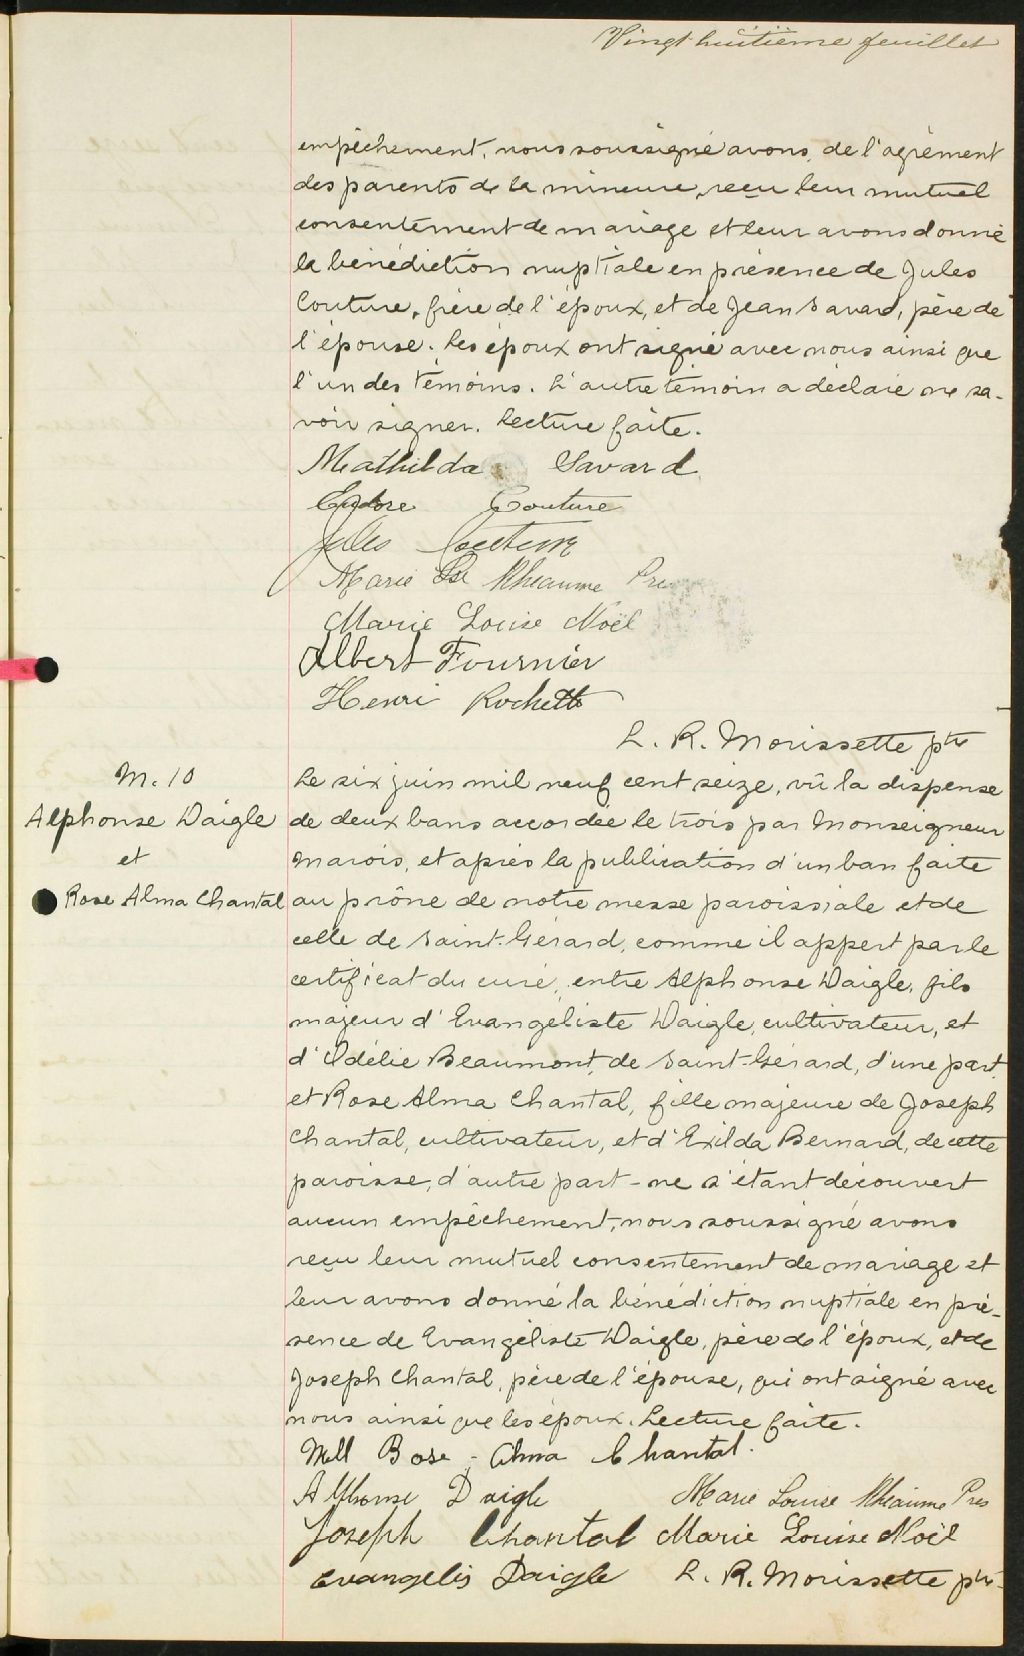 Vingt huitième feuillet
empêchement, nous soussigné avons, de l'agrément
des parents de la mineure, reçu leur mutuel
consentement de mariage et leur avons donné
la bénédiction nuptiale en présence de Jules
Couture, frère de l'époux, et de Jean Savard, père de
l'épouse. Les époux ont signé avec nous ainsi que
l'un des témoins. L'autre témoin a déclaré ne sa-
voir signer. Lecture faite.
Mathilda Savard
Eudore Couture
Jules Couture
Marie Lse Rhéaume Pres
Marie Louise Noël
Albert Fournier
Henri Rochette
L. R. Morissette ptre
M. 10
Alphonse Daigle
et
Rose Alma Chantal
Le six juin mil neuf cent seize, vû la dispense
de deux bans accordée le trois par Monseigneur
Marois, et après la publication d'un ban faite
au prône de notre messe paroissiale et de
celle de Saint-Gérard, comme il appert par le
certificat du curé, entre Alphonse Daigle, fils
majeur d'Evangéliste Daigle, cultivateur, et
d'Odélie Beaumont, de Saint-Gérard, d'une part,
et Rose Alma Chantal, fille majeure de Joseph
Chantal, cultivateur, et d'Exilda Bernard, de cette
paroisse, d'autre part - ne s'étant découvert
aucun empêchement, nous soussigné avons
reçu leur mutuel consentement de mariage et
leur avons donné la bénédiction nuptiale en pré-
sence de Evangéliste Daigle, père de l'époux, et de
Joseph Chantal, père de l'épouse, qui ont signé avec
nous ainsi que les époux. Lecture faite.
Mell Rose-Alma Chantal.
Alphonse Daigle Marie Louise Rhéaume Pres
Joseph Chantal Marie Louise Noël
Evangelis Daigle L. R. Morissette ptre